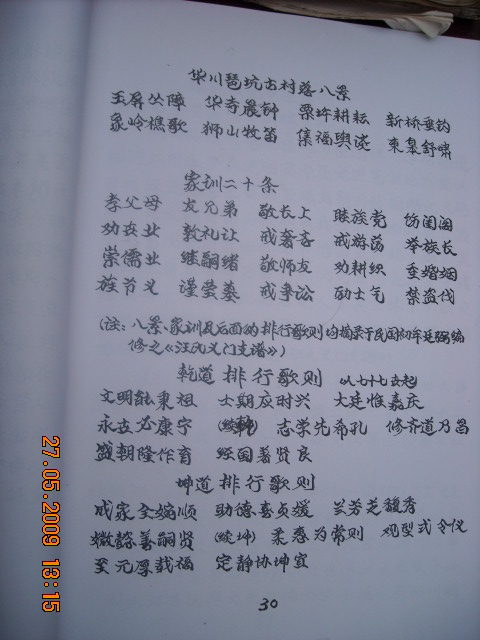 华川琶坑古村落八景
玉屏丛障 华寺晨钟 栗圩耕耘 新桥垂钓
象岭樵歌 狮山牧笛 集福舆谈 東皋舒啸
家训二十条
孝父母 友兄弟 敬长上 联族党 饬闺阃
劝农业 敦礼让 戒奢吝 戒游荡 举族长
崇儒业 继嗣绪 敬师友 劝耕织 重婚姻
旌节义 谨茔墓 戒争讼 励士气 禁盗伐
(注：八景、家训及后面的排行歌则均摘录于民国初年廷弼编
修之《汪氏义门支谱》)
乾道排行歌则 从七十七世起
文明能秉祖 士期应时兴 大廷惟嘉庆
永世必康宁 (续乾) 志学先希孔 修齐道乃昌
盛朝隆作育 经国善贤良
坤道排行歌则
成家全婉顺 助德喜贞媛 兰芳芝馥秀
嫩懿善嗣贤 (续坤) 柔惠为常则 观型式令仪
至元厚载福 定静协坤宜
30
27.05.2009 13:15